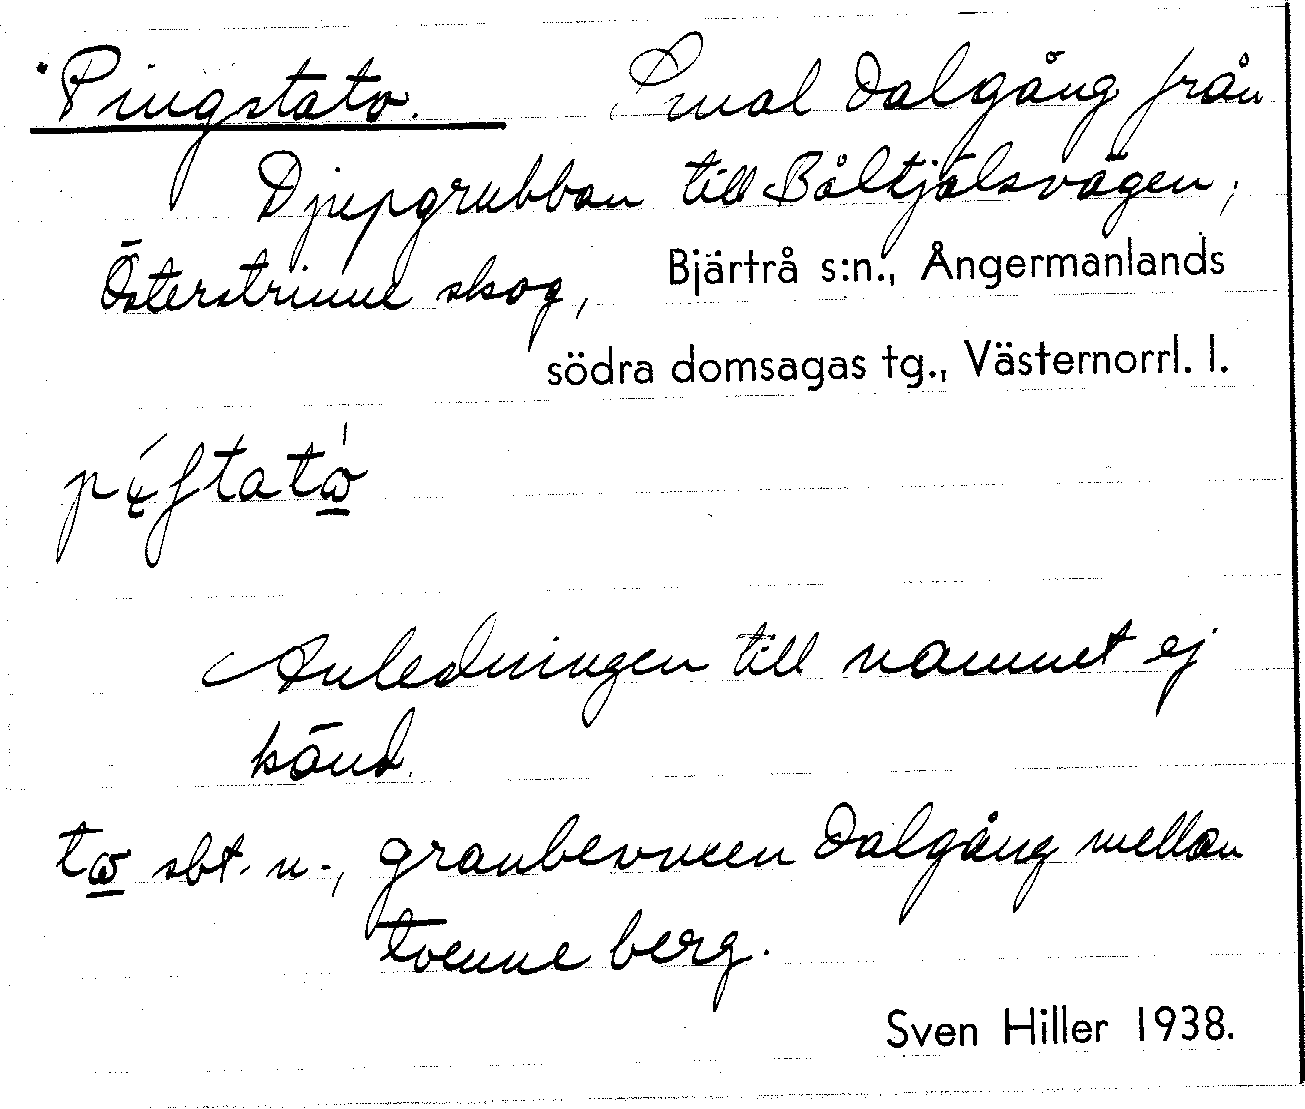 Pingstato. Smal dalgång från
Djupgrubban till Båltjälsvägen,
Österstrinne skog, Bjärtrå s:n., Ångermanlands
södra domsagas tg., Västernorrl. l.
Anledningen till namnet ej
känd.
to sbt. n., granbevuxen dalgång mellan
tvenne berg.
Sven Hiller 1938.